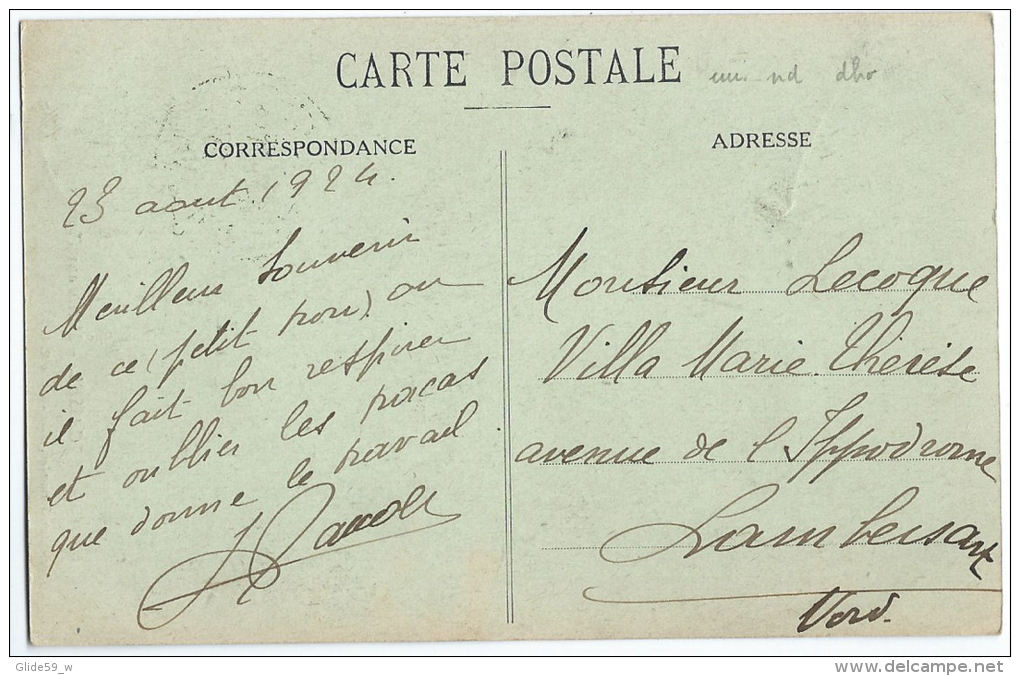 CARTE POSTALE
CORRESPONDANCE
23 aout 1924.
Meilleur Souvenir
de ce (petit trou) ou
il fait bon respirer
et oublier les tracas
que donne le travail
ADRESSE
Monsieur Lecoque
Villa Marie-Thérèse
avenue de l'Ippodrome
Lambersart
Nord.
Glide59_w
www.delcampe.net